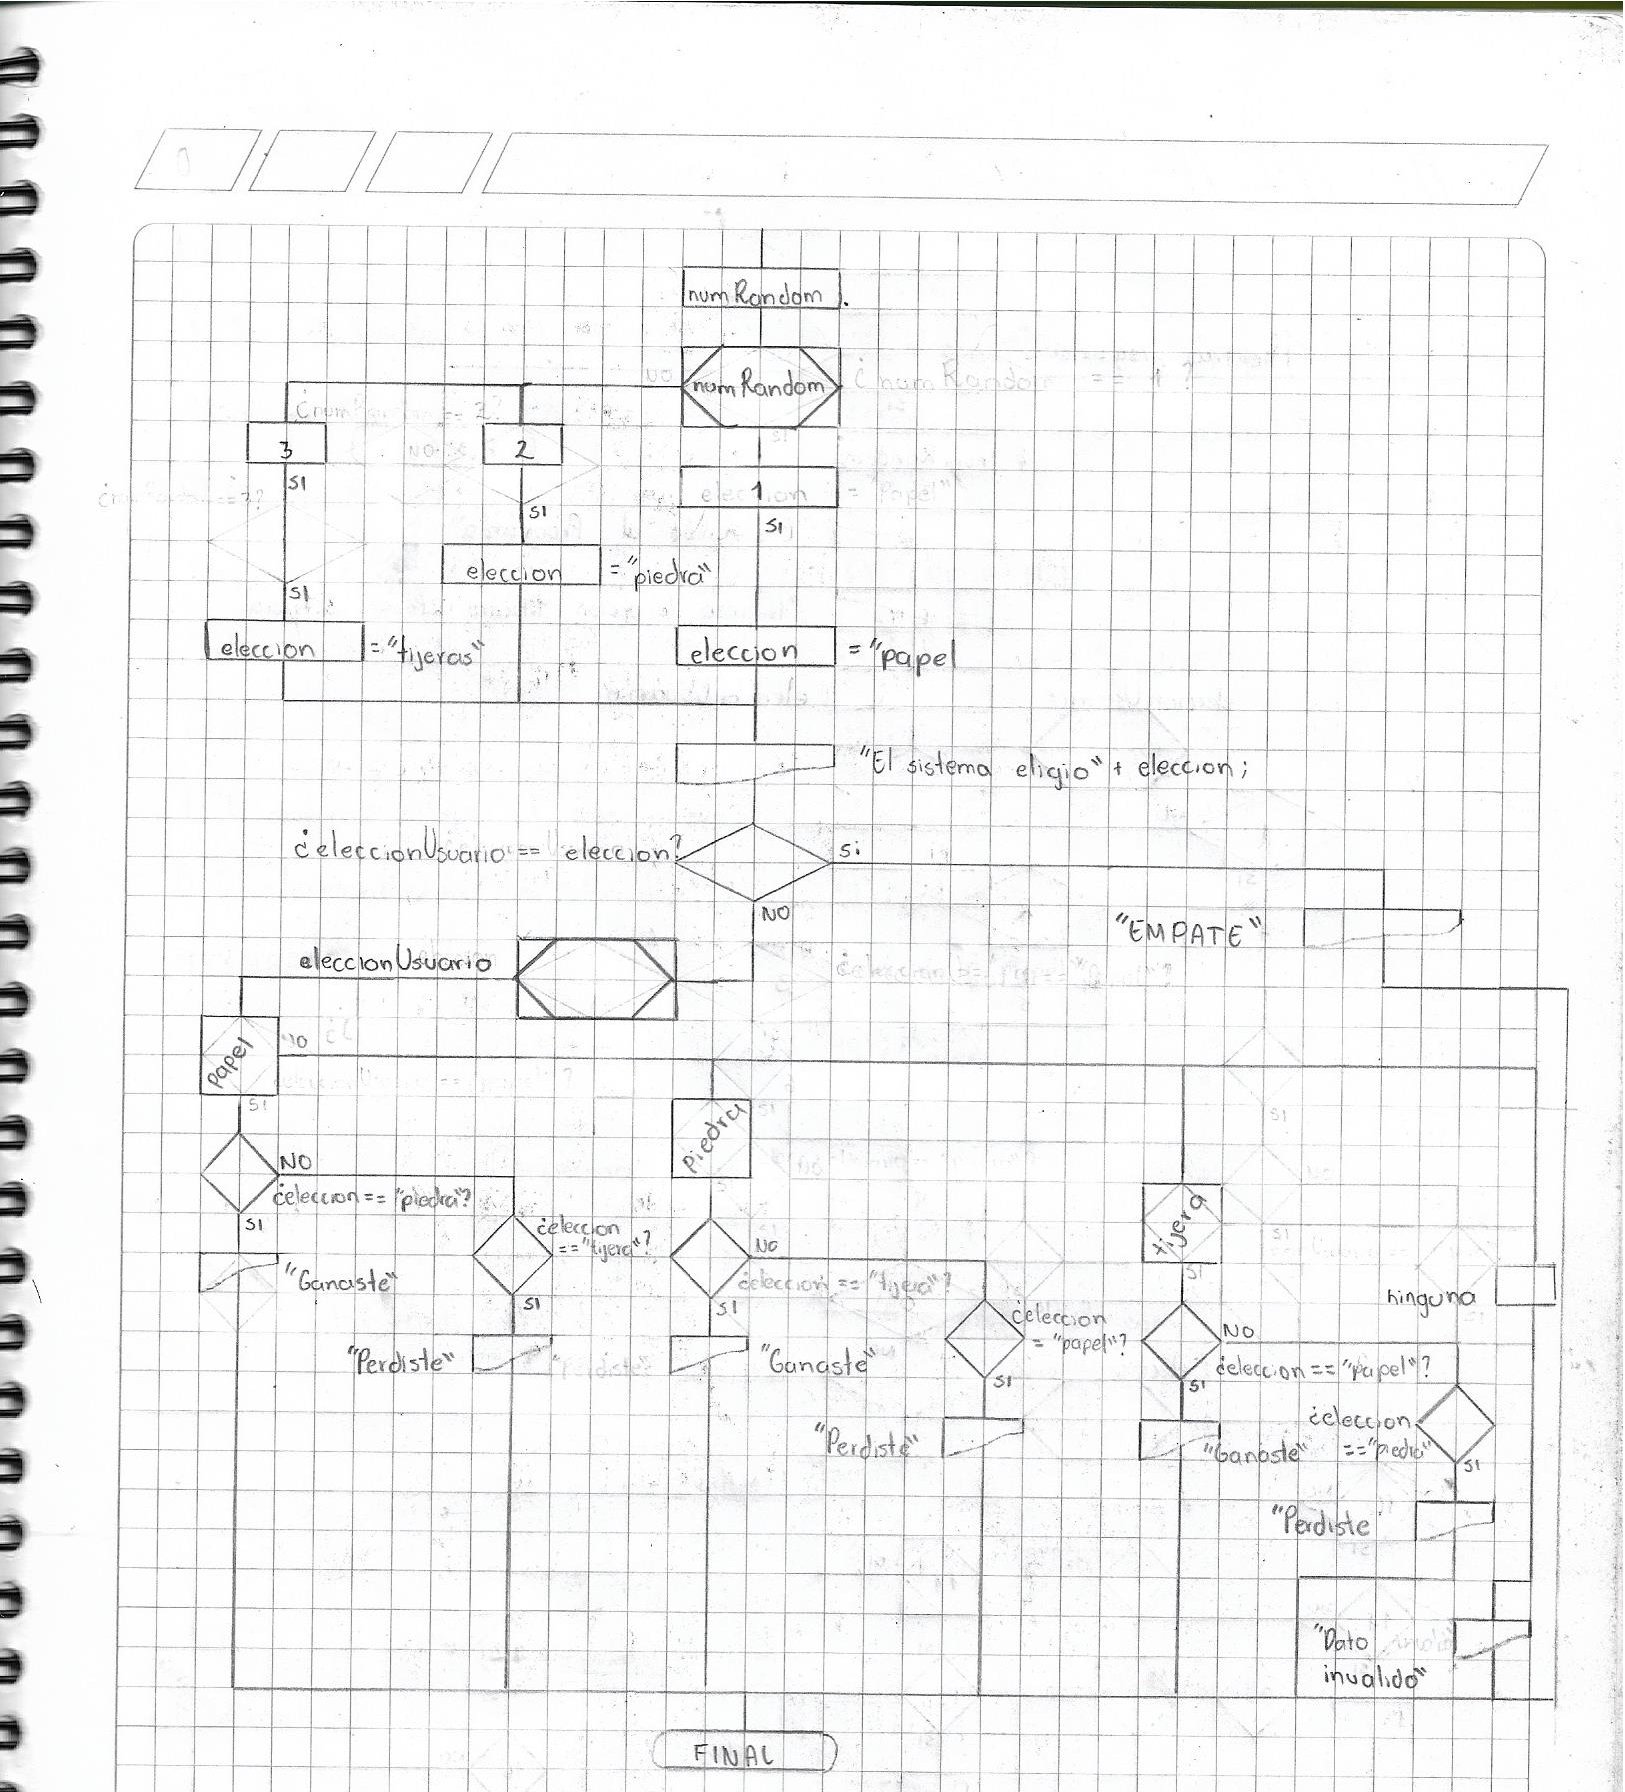 numRandom
numRandom
¿numRandom == 1?
NO
3
2
1
SI
SI
SI
SI
eleccion = "piedra"
eleccion = "tijeras"
eleccion = "papel
"El sistema eligio" + eleccion;
¿eleccionUsuario == eleccion?
Si
NO
"EMPATE"
eleccionUsuario
Papel
NO
SI
Piedra
tijera
NO
¿eleccion == "piedra"?
SI
"Ganaste"
¿eleccion
=="tijera"?
SI
"Perdiste"
NO
¿eleccion == "tijera"?
SI
"Ganaste"
¿eleccion
= "papel"?
SI
"Perdiste"
SI
NO
¿eleccion == "papel"?
SI
"Ganaste"
¿eleccion
=="piedra"
SI
"Perdiste
ninguna
"Dato
invalido"
FINAL